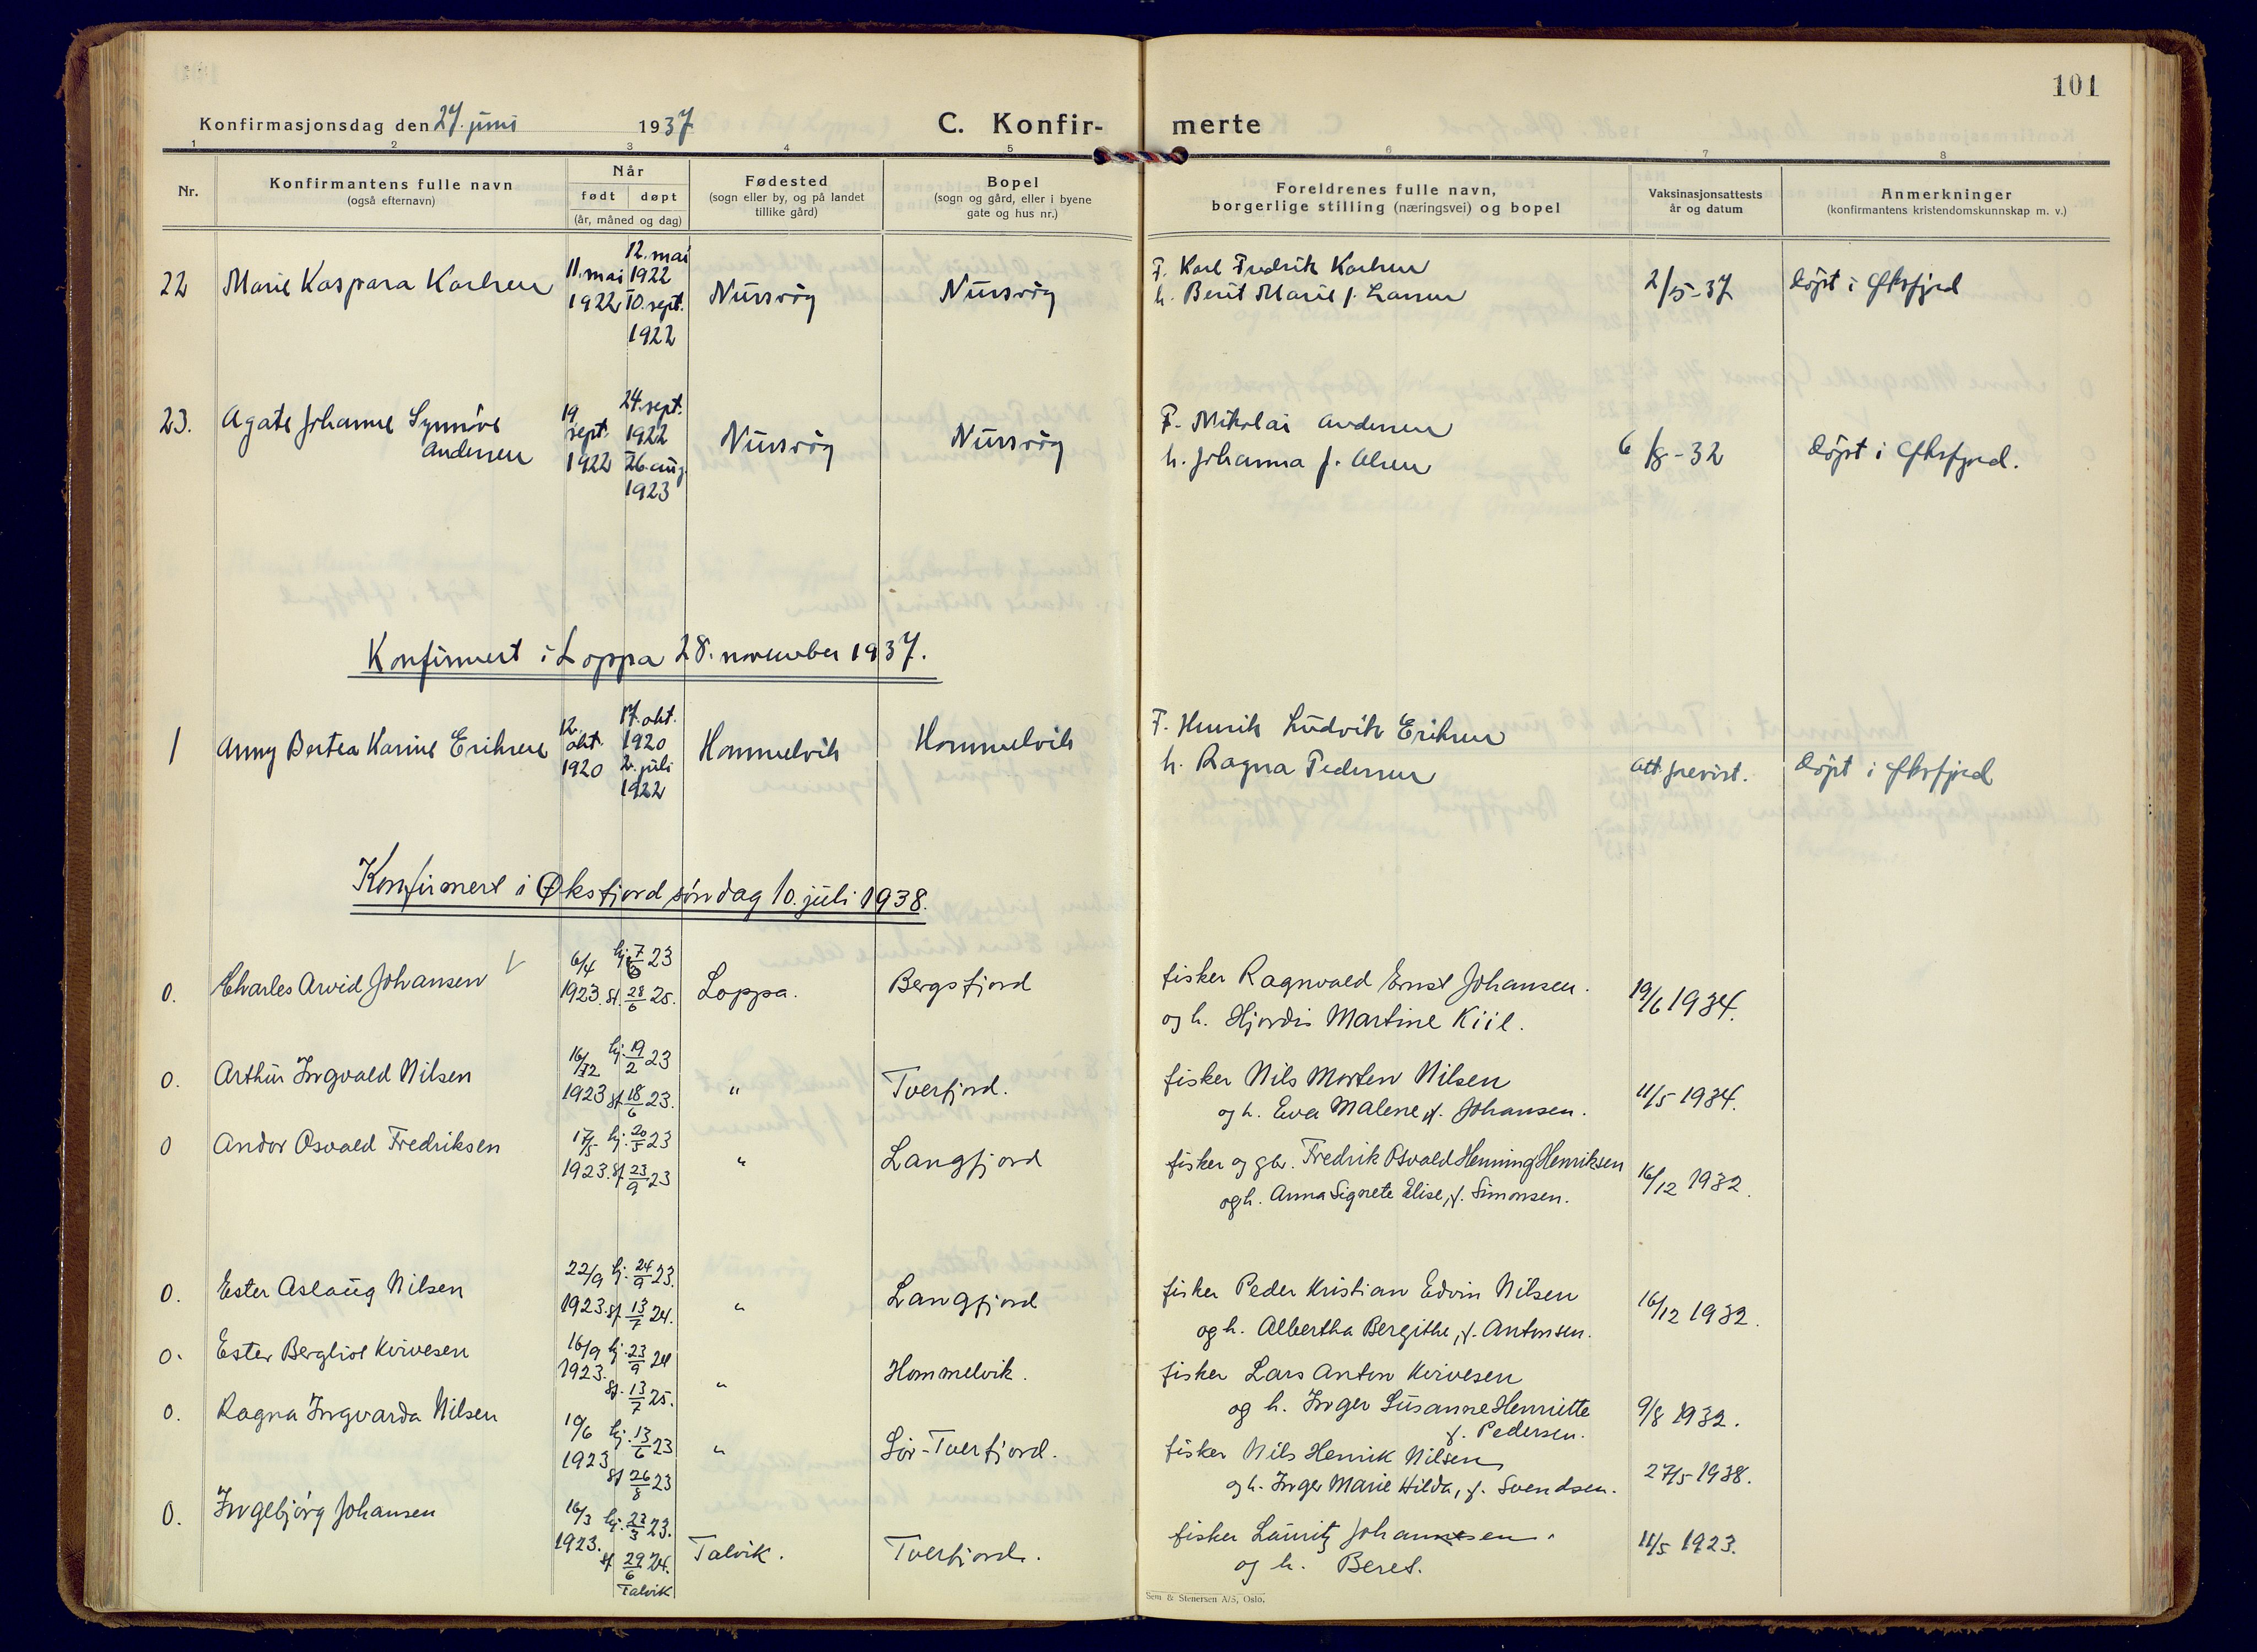 101
Konfirmasjonsdag den 27. juni 1937
C. Konfir- merte
1 2 3 4 5 6 7 8
Nr.
Konfirmantens fulle navn
(også efternavn)
Når
født døpt
(år, måned og dag)
Fødested
(sogn eller by, og på landet
tillike gård)
Bopel
(sogn og gård, eller i byene
gate og hus nr.)
Foreldrenes fulle navn,
borgerlige stilling (næringsvei) og bopel
Vaksinasjonsattests
år og datum
Anmerkninger
(konfirmantens kristendomskunnskap m. v.)
22 Marie Kaspara Karlsen
11. mai
1922
12. mai
1922
10. sept.
1922
Nussvåg
Nussvåg
F. Karl Fredrik Karlsen
h. Berit Marie f. Larsen
2/5-37
døpt i Øksfjord
23. Agate Johanne Synnøve
Andersen
19
sept.
1922
24. sept.
1922
26. aug
1923
Nussvåg
Nussvåg
F. Nikolai Andersen
h. Johanna f. Olsen
6/8-32
døpt i Øksfjord.
Konfirmert i Loppa 28. november 1937.
1 Anny Bertea Karine Eriksen
12.
okt.
1920
17. okt.
1920
2. juli
1922
Hommelvik
Hommelvik
F. Henrik Ludvik Eriksen
h. Ragna Pedersen
att. forevist.
døpt i Øksfjord
Konfirmert i Øksfjord søndag 10. juli 1938.
0. Charles Arvid Johansen
6/4
1923.
hj. 7/6 23
st. 28/6 25.
Loppa.
Bergsfjord
fisker Ragnvald Ernst Johansen.
og h. Hjørdis Martine Kiil.
19/6 1934.
0. Arthur Ingvald Nilsen
16/12
1923
hj. 19/2 23
st 18/6 23.
"
Tverfjord.
fisker Nils Morten Nilsen
og h. Eva Malene, f. Johansen.
11/5 1934.
0 Andor Osvald Fredriksen
17/5
1923.
hj. 20/5 23
st 23/9 23
"
Langfjord
fisker og gbr. Fredrik Osvald Henning Henriksen
og h. Anna Signete Elise, f. Simonsen.
16/12 1932.
0. Ester Aslaug Nilsen
22/9
1923.
hj. 24/9 23.
st 13/7 24.
"
Langfjord
fisker Peder Kristian Edvin Nilsen
og h. Albertha Bergithe, f. Antonsen.
16/12 1932.
0. Ester Bergliot Kvivesen
16/9
1923.
hj 23/9 24
st. 13/7 25.
"
Hommelvik.
fisker Lars Anton Kvivesen
og h. Inger Susanne Henriette
f. Pedersen.
9/8 1932.
0. Ragna Ingvarda Nilsen
10/6
1923
hj. 13/6 23
st 26/8 23
"
Sør-Tverfjord.
fisker Nils Henrik Nilsen
og h. Inger Marie Hilda, f. Svendsen.
27/5 1938.
0. Ingebjørg Johansen
16/3
1923.
hj. 23/3 23.
st 29/6 24.
Talvik
Talvik.
Tverfjord.
fisker Lauritz Johannesen.
og h. Beret.
11/5 1923.
Sem & Stenersen A/S, Oslo.